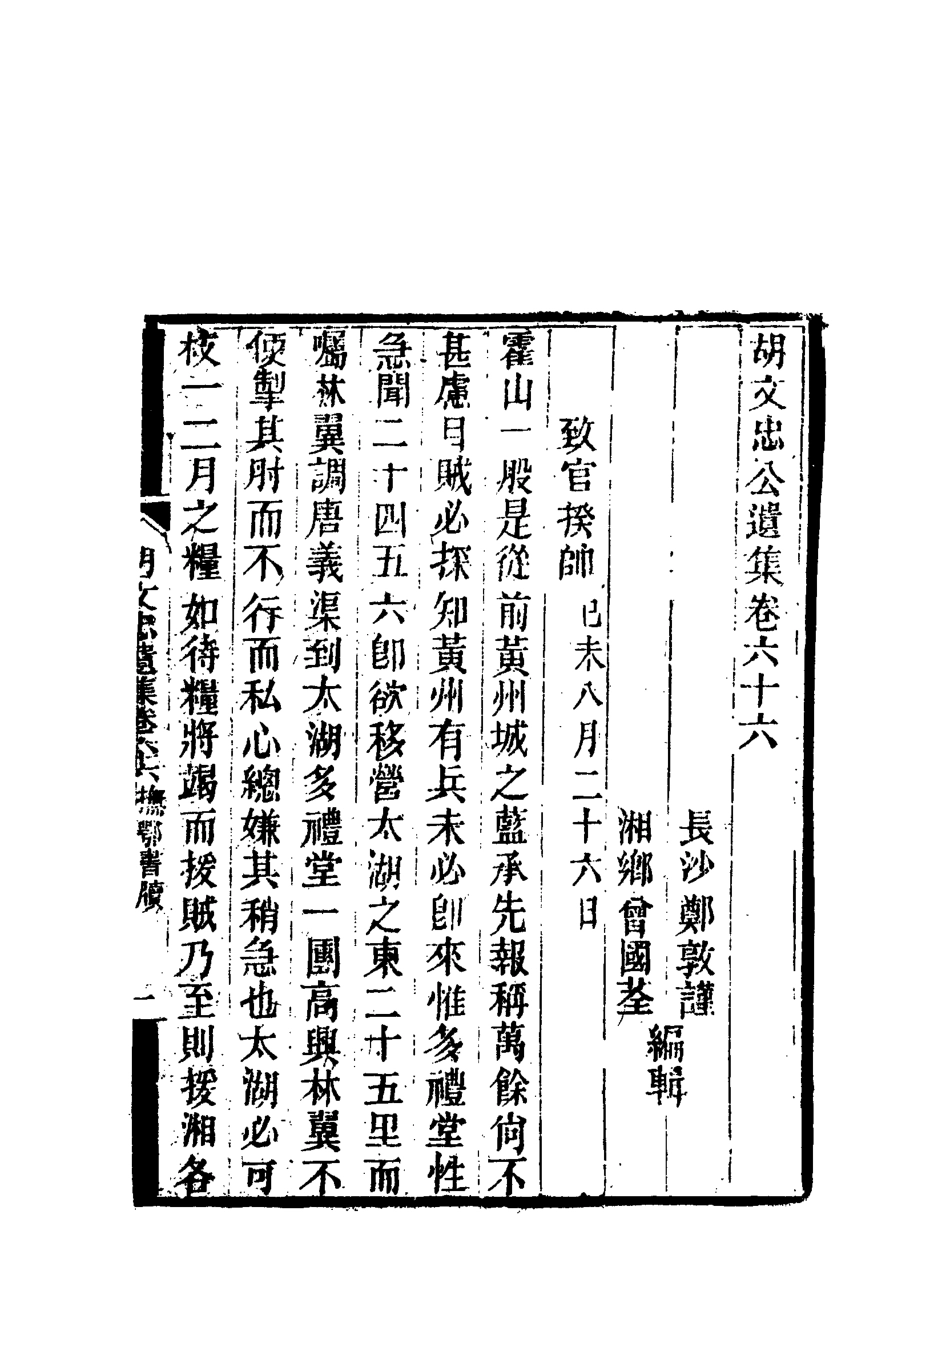 胡文忠公遺集卷六十六
長沙鄭敦謹
湘鄉曾國荃
編輯
致官揆帥 己未八月二十六日
霍山一股是從前黃州城之藍承先報稱萬餘尙不
甚慮日賊必探知黃州有兵未必卽來惟多禮堂性
急聞二十四五六卽欲移營太湖之東二十五里而
囑林翼調唐義渠到太湖多禮堂一團高興林翼不
便掣其肘而不行而私心總嫌其稍急也太湖必可
枝一二月之糧如待糧將竭而援賊乃至則援湘各
胡文忠遺集卷六六 撫鄂書牘 一